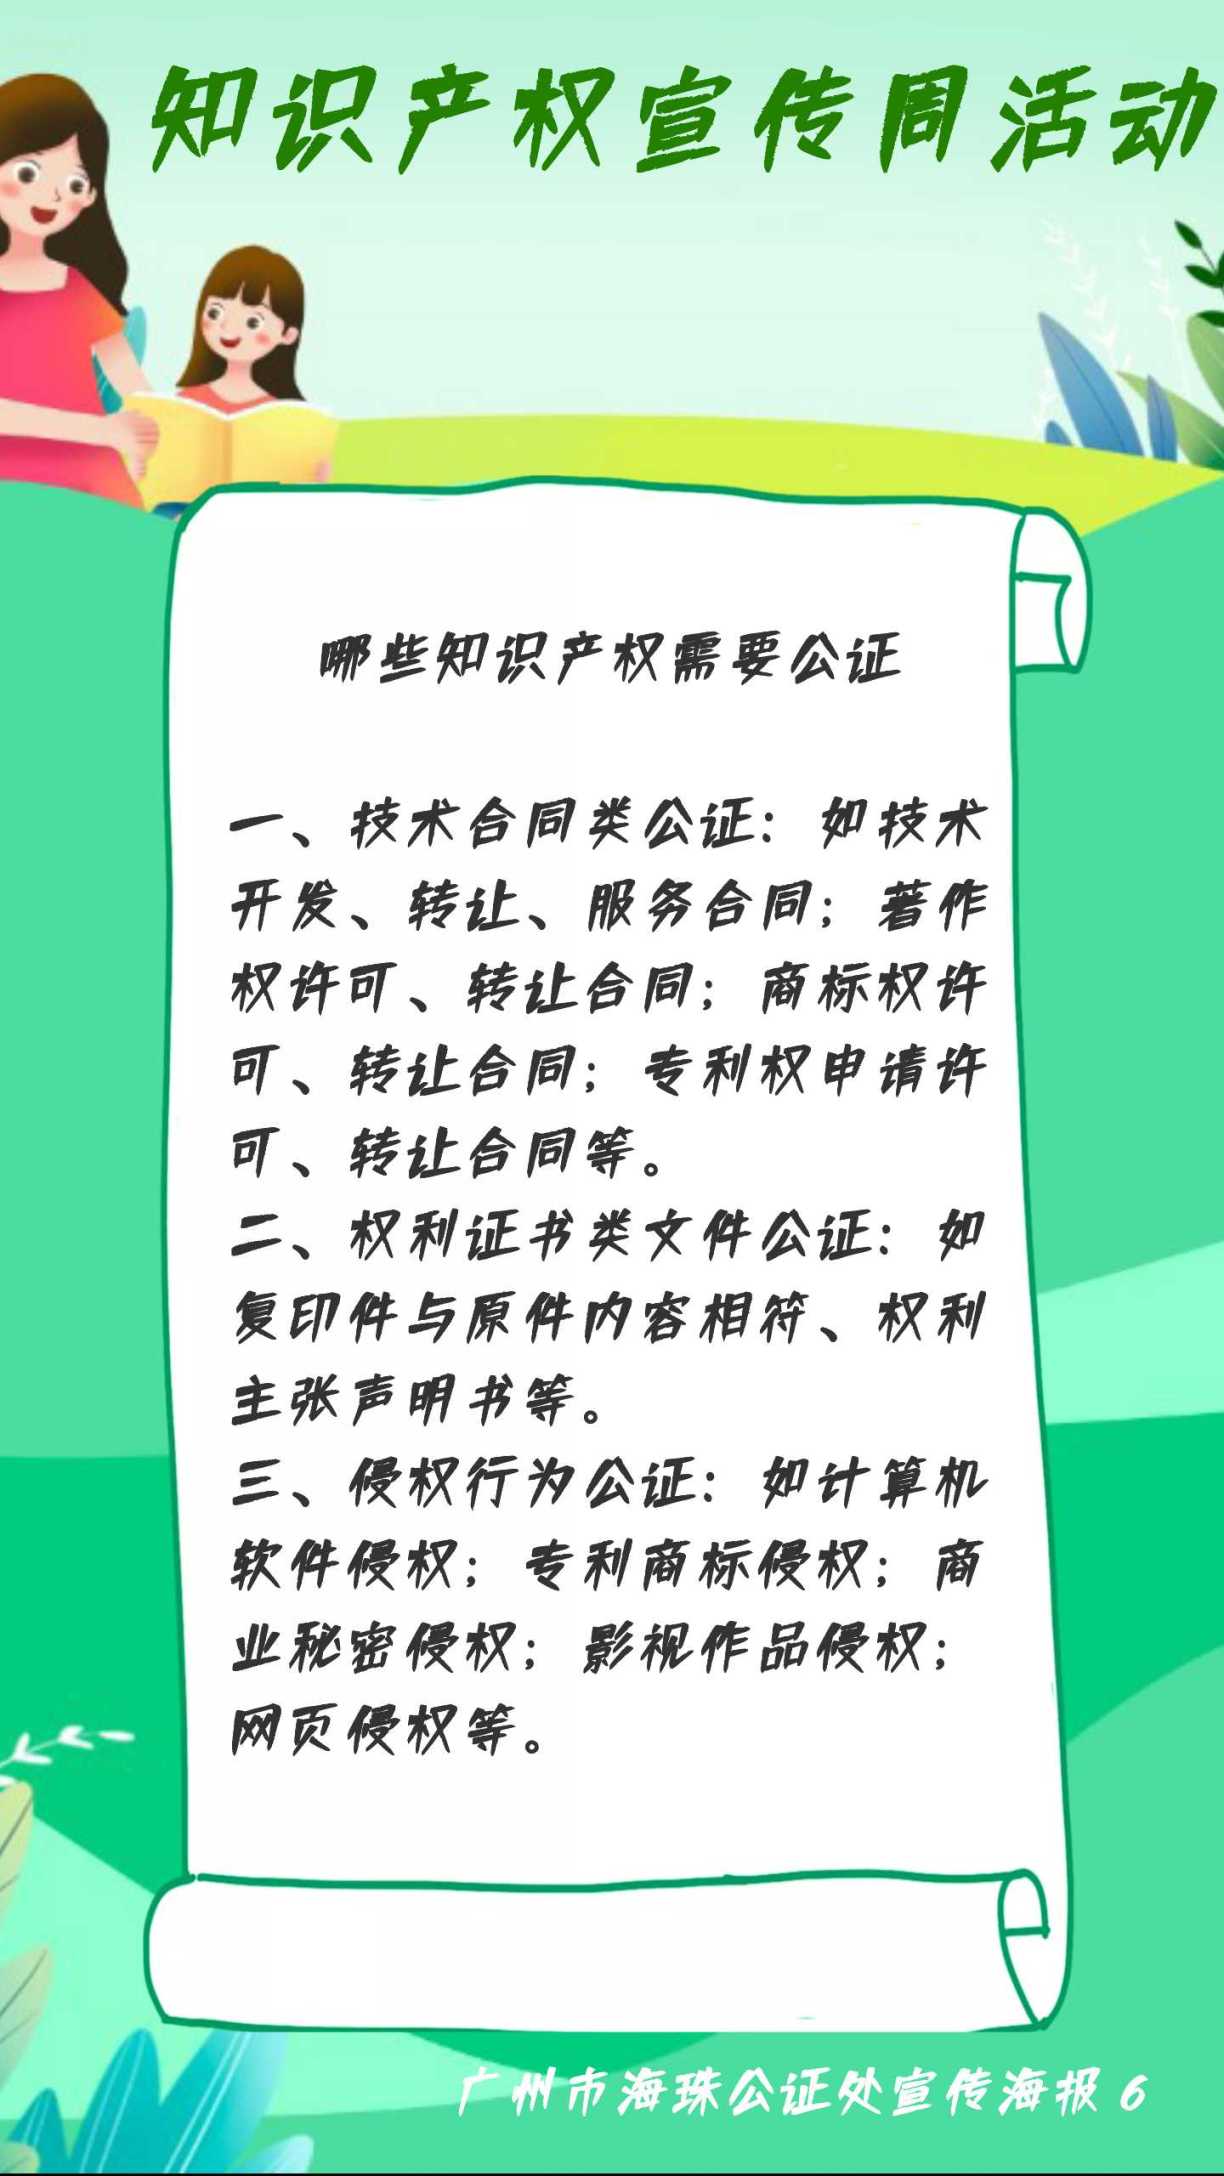 知识产权宣传周活动
哪些知识产权需要公证
一、技术合同类公证：如技术
开发、转让、服务合同；著作
权许可、转让合同；商标权许
可、转让合同；专利权申请许
可、转让合同等。
二、权利证书类文件公证：如
复印件与原件内容相符、权利
主张声明书等。
三、侵权行为公证：如计算机
软件侵权；专利商标侵权；商
业秘密侵权；影视作品侵权；
网页侵权等。
广州市海珠公证处宣传海报 6